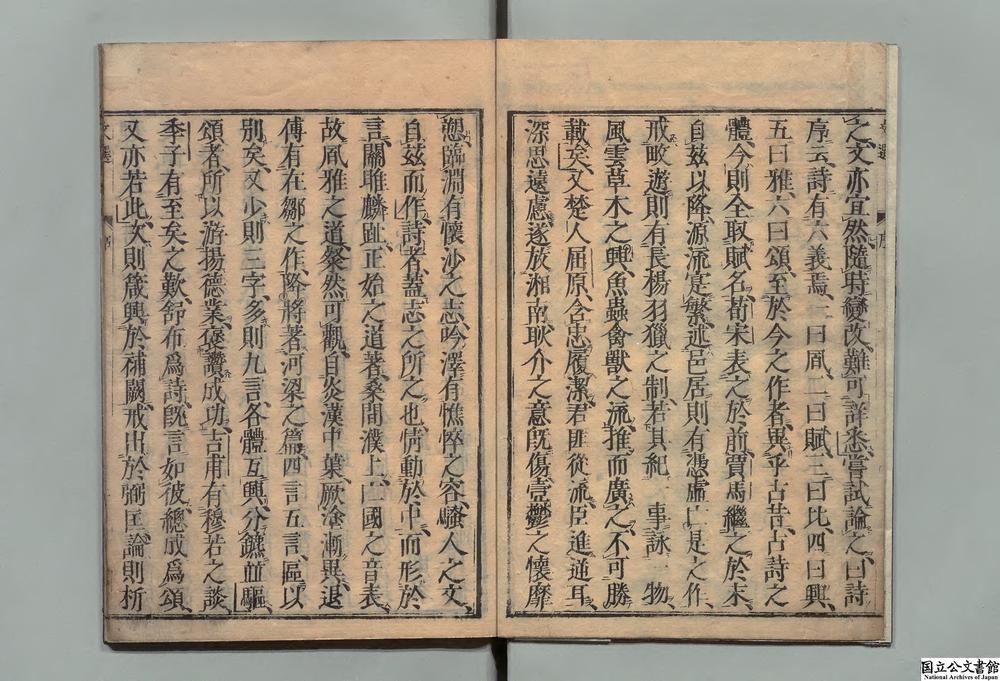 之文亦宜然隨時變改難可詳悉嘗試論之曰詩
序云詩有六義焉一曰風二曰賦三曰比四曰興
五曰雅六曰頌至於今之作者異乎古昔古詩之
體今則全取賦名荀宋表之於前賈馬繼之於末
自茲以降源流寔繁述邑居則有憑虛亡是之作
戒畋遊則有長楊羽獵之制若其紀一事詠一物
風雲草木之興魚蟲禽獸之流推而廣之不可勝
載矣又楚人屈原含忠履潔君匪從流臣進逆耳
深思遠慮遂放湘南耿介之意既傷壹鬱之懷靡
愬臨淵有懷沙之志吟澤有憔悴之容騷人之文
自茲而作詩者蓋志之所之也情動於中而形於
言關雎麟趾正始之道著桑間濮上亡國之音表
故風雅之道粲然可觀自炎漢中葉厥塗漸異退
傅有在鄒之作降將著河梁之篇四言五言區以
別矣又少則三字多則九言各體互興分鑣並驅
頌者所以游揚德業褒讚成功吉甫有穆若之談
季子有至矣之歎舒布為詩既言如彼總成為頌
又亦若此次則箴興於補闕戒出於弼匡論則析
文選
序
国立公文書館
National Archives of Japan